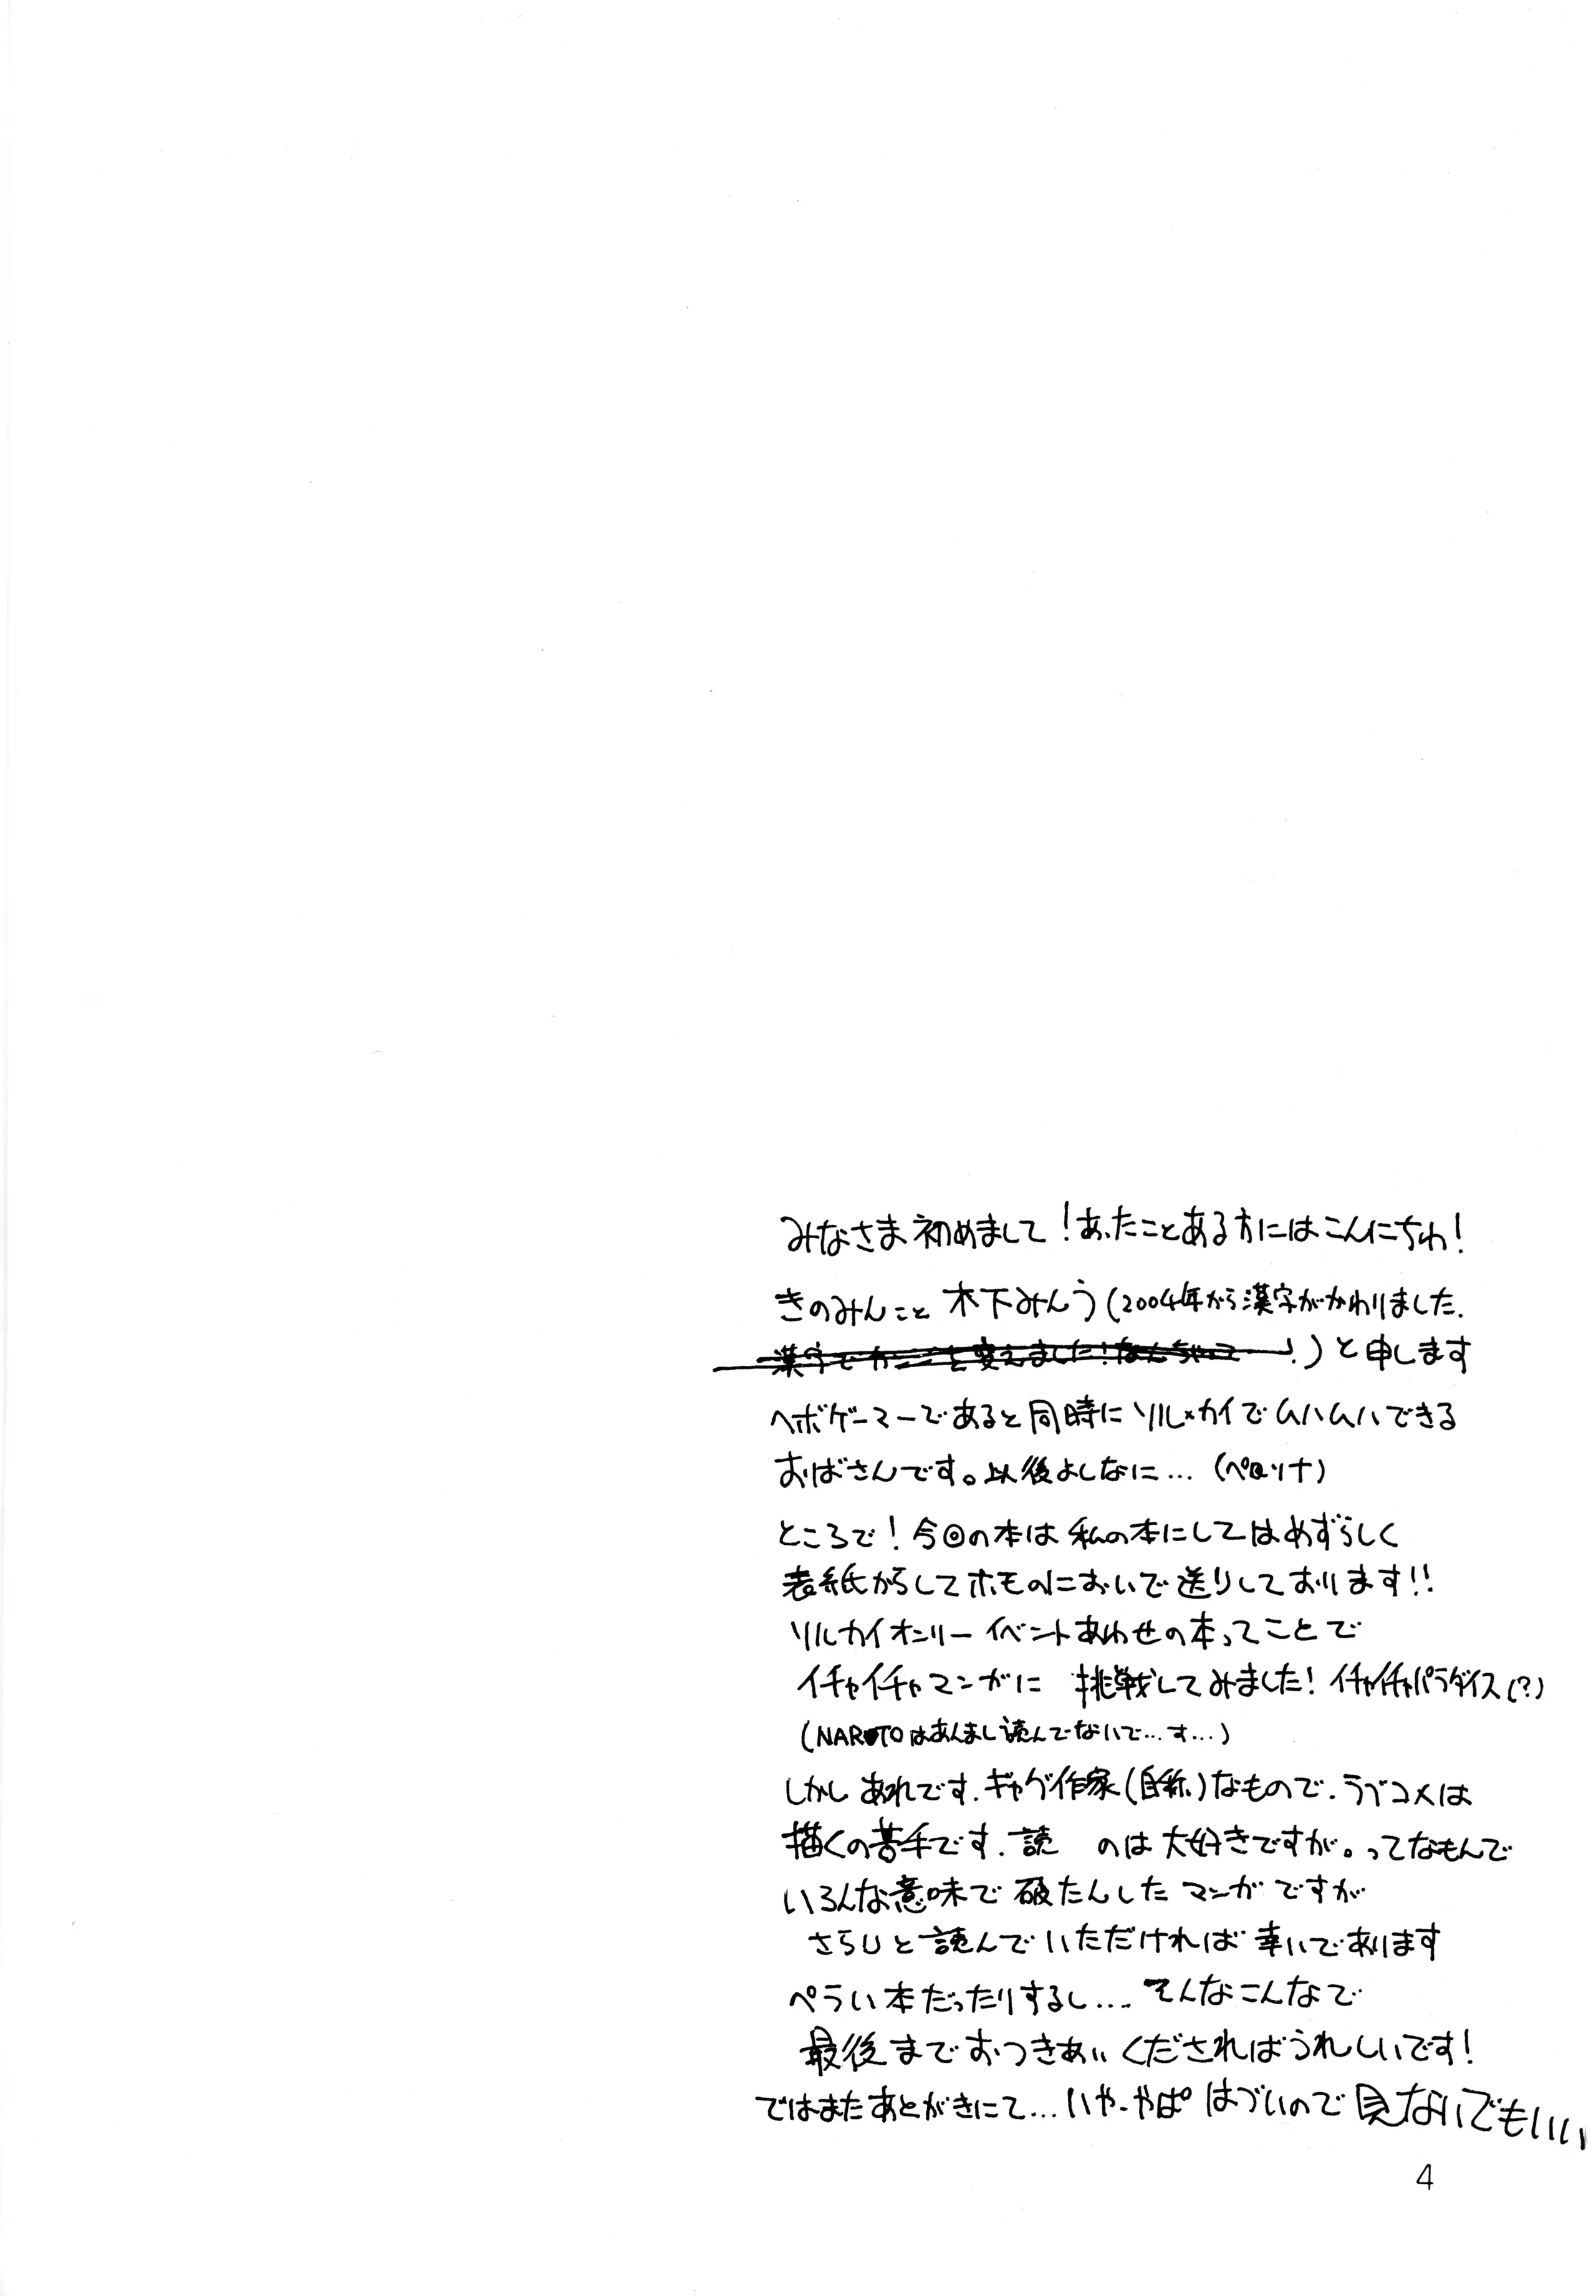 みなさま初めまして！あったことある方にはこんにちわ！
きのみんこと 木下みんう(2004年から漢字がかわりました.
！)と申します
ヘボゲーマーであると同時にソル×カイでムハムハできる
おばさんです。以後よしなに…(ペロリナ)
ところで！今回の本は私の本にしてはめずらしく
表紙からしてホモのにおいで送りしております!!
ソルカイオンリーイベントあわせの本ってことで
イチャイチャマンガに 挑戦してみました！イチャイチャパラダイス(?)
(NARUTOはあんまし読んでないで…す…)
しかしあれです.ギャグ作家(自称)なもので.ラブコメは
描くの苦手です.読 のは大好きですが。ってなもんで
いろんな意味で破たんしたマンガですが
さらりと読んでいただければ幸いであります
ぺらい本だったりするし…. そんなこんなで
最後までおつきあいくださればうれしいです！
ではまたあとがきにて…いや-やぱはづいので見ないでもいい
4